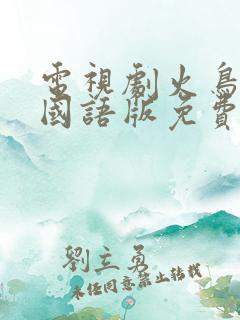 電視劇火鳥
國語版免費
劉立勇
未經同意禁止轉載